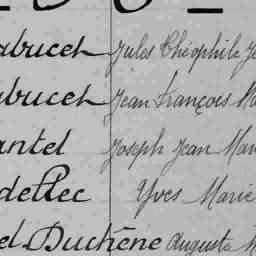 abucet Jules Théophile Je
abucet Jean François Ma
antel Joseph Jean Mar
dellec Yves Marie
el Duchêne Auguste M